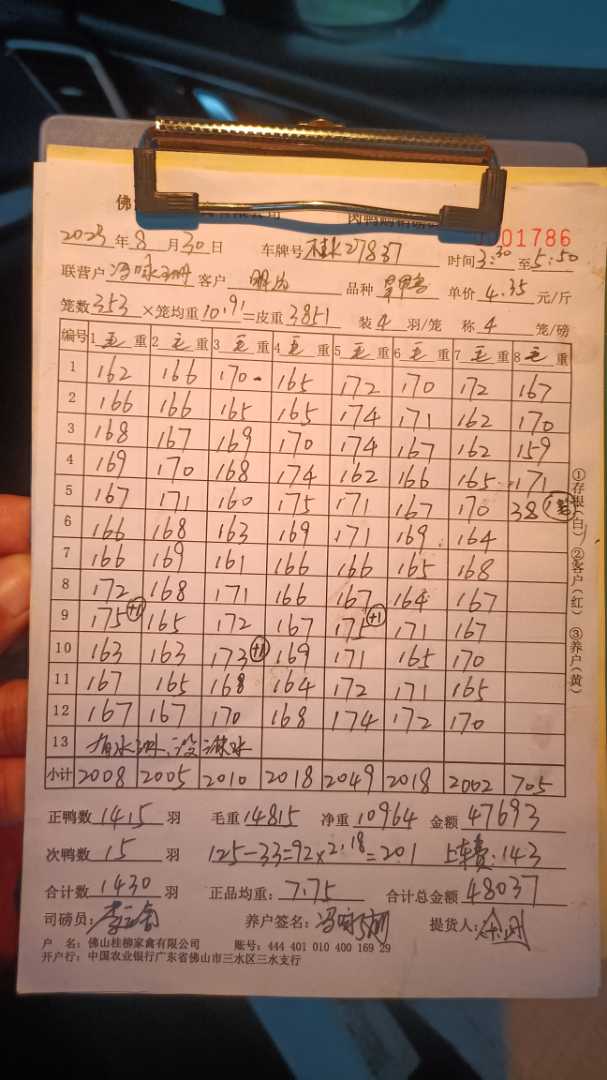 佛
01786
2023年8月30日 车牌号桂K27837 时间3:30至5:50
联营户冯咏 客户 品种 单价4.35元/斤
笼数353×笼均重10.91=皮重3851 装4羽/笼 称4笼/磅
编号 1毛重 2毛重 3毛重 4毛重 5毛重 6毛重 7毛重 8毛重
1 162 166 170 165 172 170 172 167
2 166 166 165 165 174 171 162 170
3 168 167 169 170 174 167 162 159
4 169 170 168 174 162 166 165 171
5 167 171 160 175 171 167 170 38
6 166 168 163 169 171 169 164
7 166 169 161 166 166 165 168
8 172 168 171 166 167 164 167
9 175+1 165 172 167 175+1 171 167
10 163 163 173+1 169 171 165 170
11 167 165 168 164 172 171 165
12 167 167 170 168 174 172 170
13 有水 没淋水
小计 2008 2005 2010 2018 2049 2018 2002 705
①存根(白) ②客户(红) ③养户(黄)
正鸭数1415羽 毛重14815 净重10964 金额47693
次鸭数15羽 125-33=92×2.18=201 上车费:143
合计数1430羽 正品均重:7.75 合计总金额48037
司磅员: 养户签名:冯咏 提货人:
户 名:佛山桂柳家禽有限公司 账号:444 401 010 400 169 29
开户行:中国农业银行广东省佛山市三水区三水支行